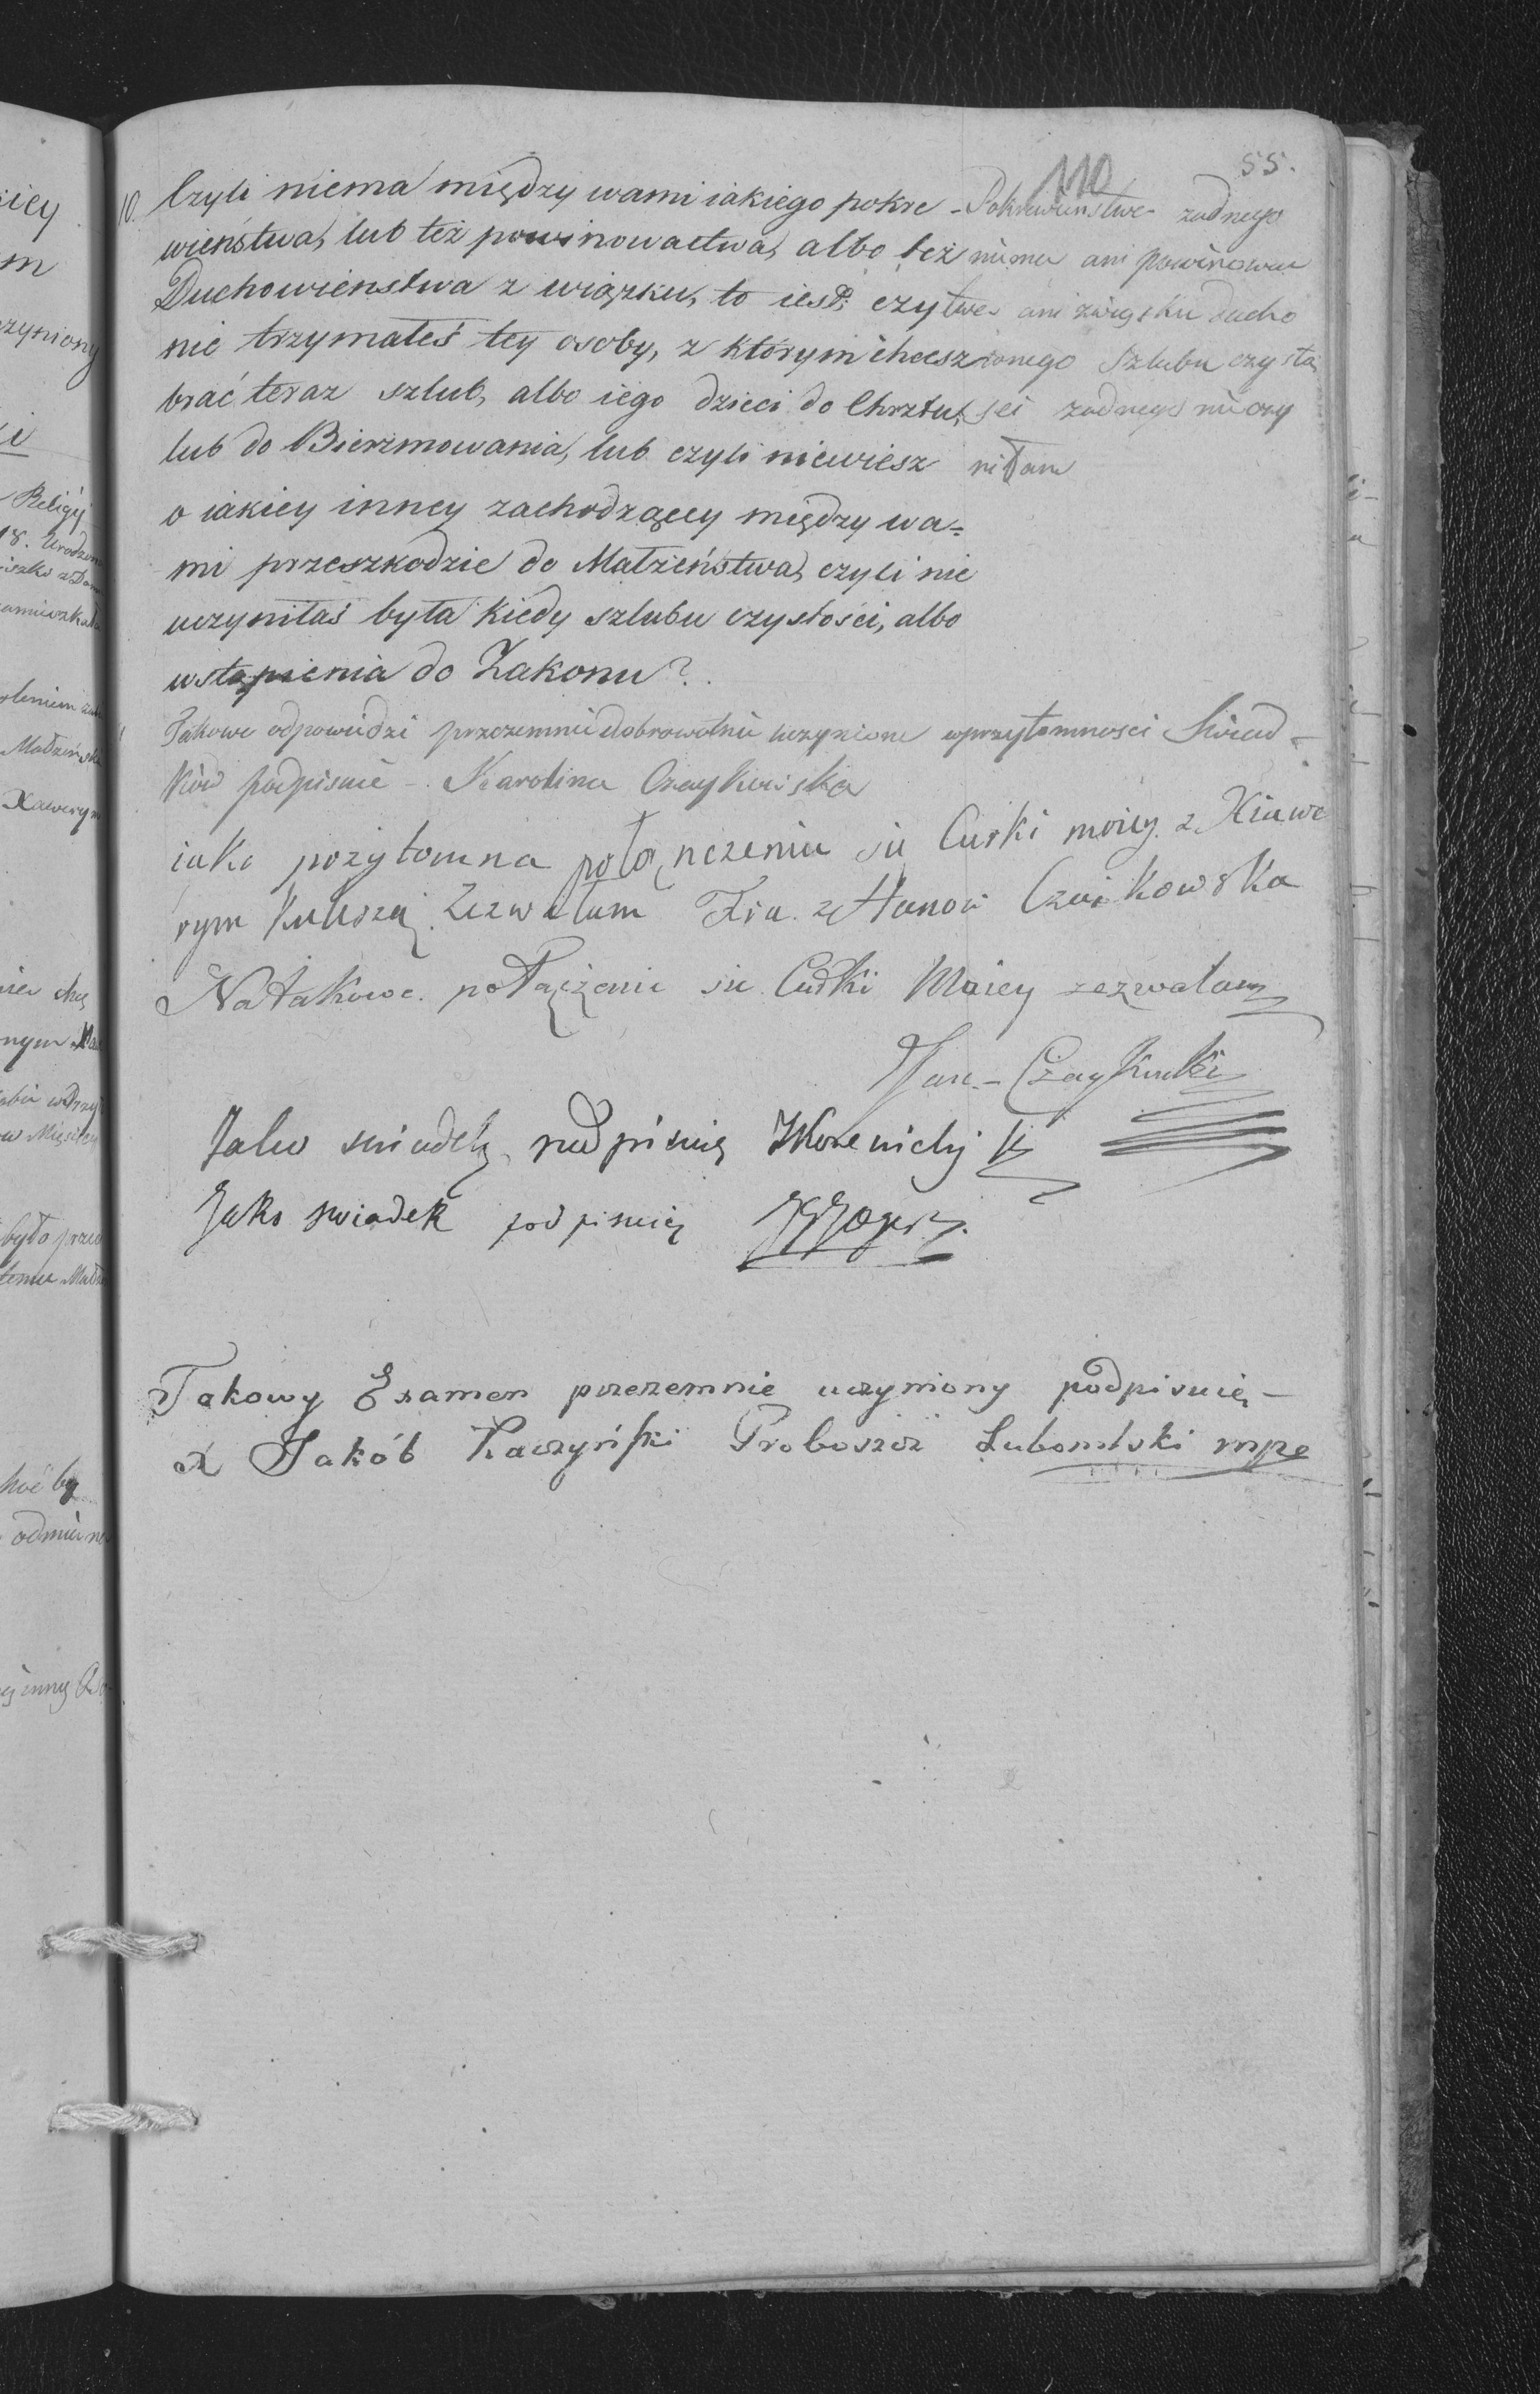 110
55.
10. Czyli niema między wami iakiego pokre-
wieństwa, lub też powinowactwa, albo też
Duchowieństwa związku, to iest: czyli
nie trzymałeś tey osoby, z którym chcesz
brać teraz szlub, albo iego dzieci do Chrztu,
lub do Bierzmowania, lub czyli niewiesz
o iakiey inney zachodzącey między wa=
mi przeszkodzie do Małżeństwa, czyli nie
uczyniłaś była kiedy szlubu czystości, albo
wstąpienia do Zakonu?
- Pokrewienstwa zadnego
nima ani powinowa
twa ani zwiąsku ducho
wnego Szlubu czysto
sci zadnego nieczy
niłam
Takowe odpowiedzi przezemnie dobrowolnie uczynione wprzytomnosci Swiad-
ków podpisuie - Karolina Czaykowska
iako pozytomna połąnczeniu sie Curki moiey z Xiawe
rym Kuleszą Zezwalam Fra. z Hanow Czaikowska
Natakowe połączenie sie Curki Moiey zezwalam
Jan - Czaykowski
Jako swiadek podpisuię
Jako swiadek podpisuię
Takowy Examen przezemnie uczyniony podpisuię -
X Jakób Kaczyński Proboszcz Lubomlski mpe